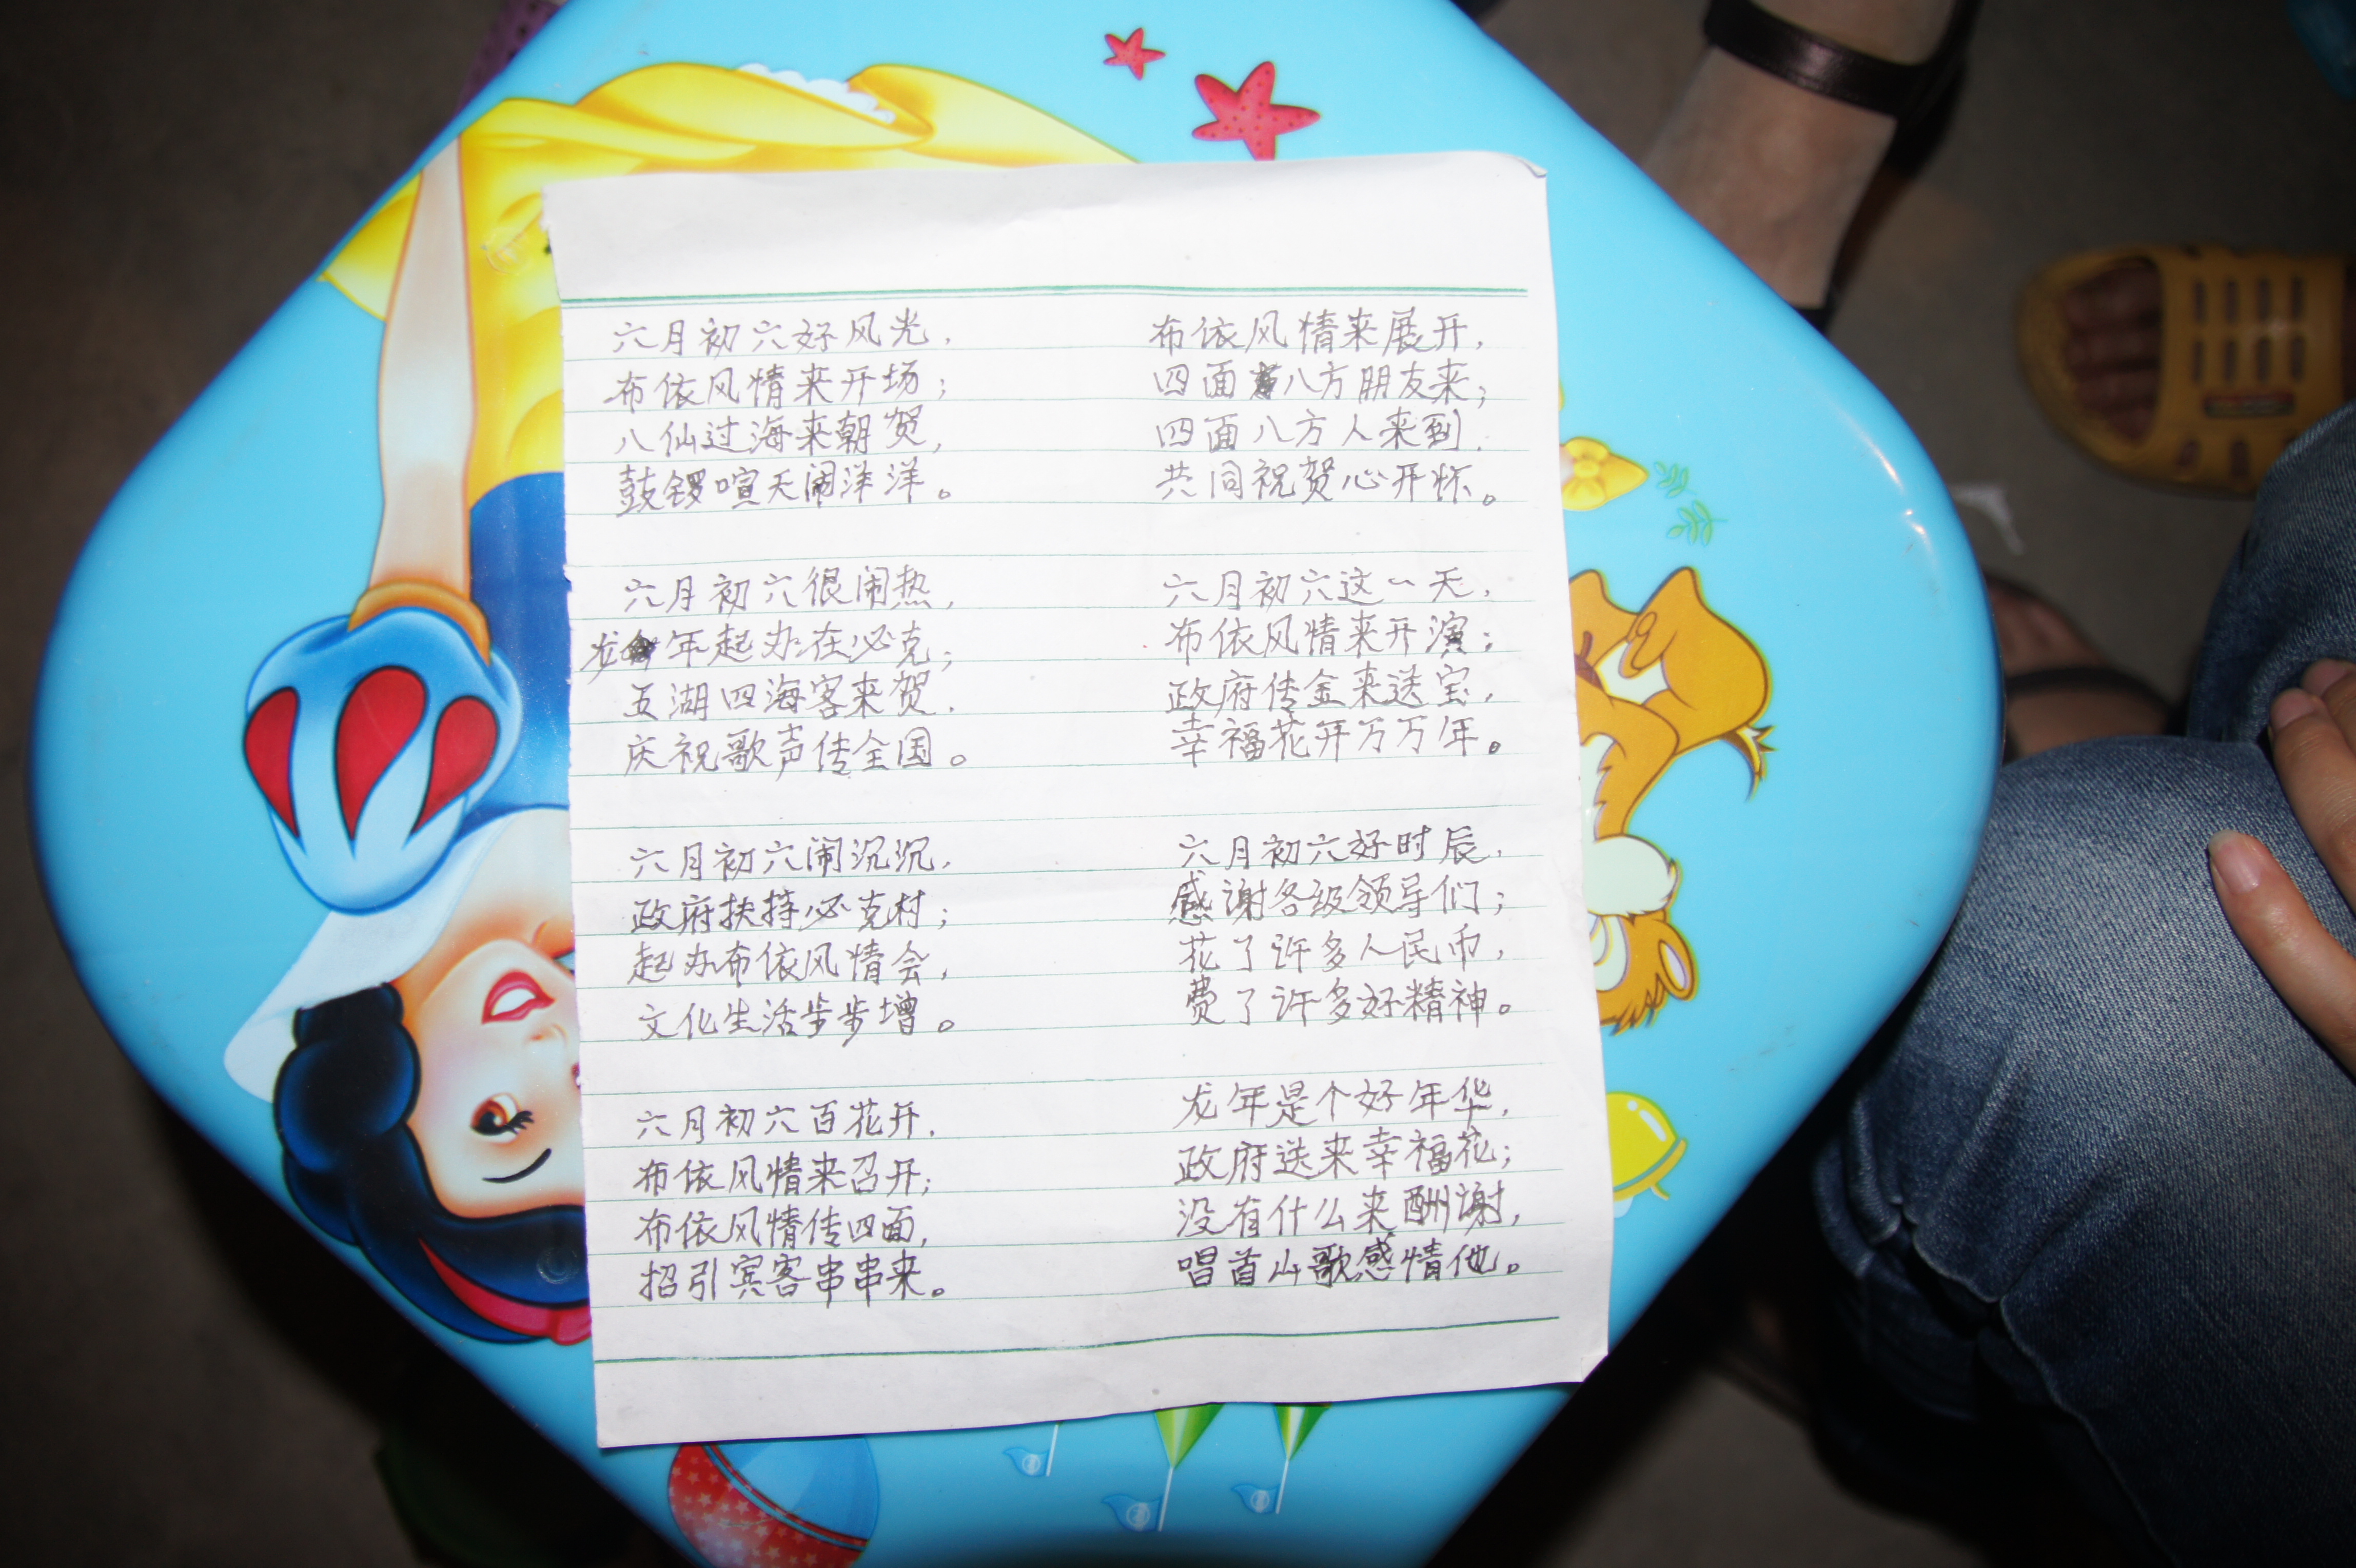 六月初六好风光，
布依风情来开场；
八仙过海来朝贺，
鼓锣喧天闹洋洋。
六月初六很闹热，
龙年起办在必克；
五湖四海客来贺，
庆祝歌声传全国。
六月初六闹沉沉，
政府扶持必克村；
起办布依风情会，
文化生活步步增。
六月初六百花开，
布依风情来召开；
布依风情传四面，
招引宾客串串来。
布依风情来展开，
四面八方朋友来；
四面八方人来到，
共同祝贺心开怀。
六月初六这一天，
布依风情来开演；
政府传金来送宝，
幸福花开万万年。
六月初六好时辰，
感谢各级领导们；
花了许多人民币，
费了许多好精神。
龙年是个好年华，
政府送来幸福花；
没有什么来酬谢，
唱首山歌感情他。